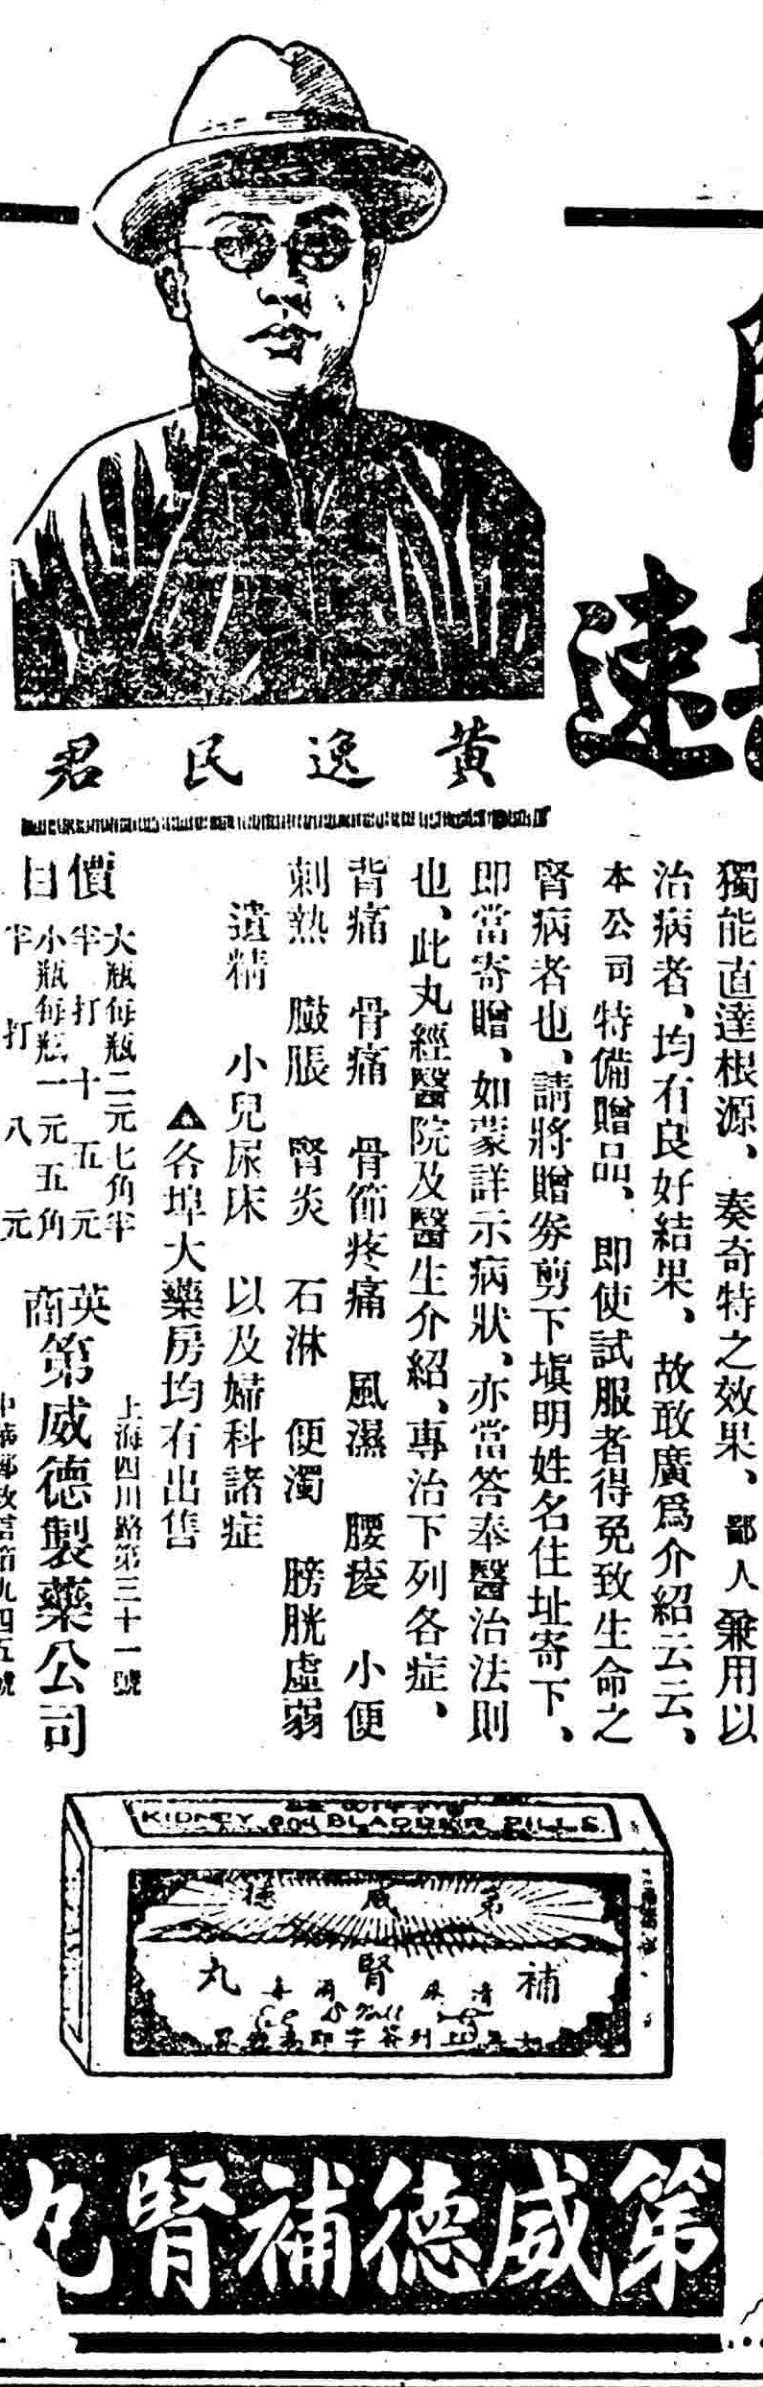 速
黃逸民君
獨能直達根源、奏奇特之效果、鄙人兼用以
治病者、均有良好結果、故敢廣爲介紹云云、
本公司特備贈品、卽使試服者得免致生命之
腎病者也、請將贈券剪下塡明姓名住址寄下、
卽當寄贈、如蒙詳示病狀、亦當答奉醫治法則
也、此丸經醫院及醫生介紹、專治下列各症、
背痛 骨痛 骨節疼痛 風濕 腰痠 小便
刺熱 臌脹 腎炎 石淋 便濁 膀胱虛弱
遺精 小兒尿床 以及婦科諸症
▲各埠大藥房均有出售
價目
大瓶每瓶二元七角半
半打十五元
小瓶每瓶一元五角
半打八元
上海四川路第三十一號
英商第威德製藥公司
中華郵政信箱九四五號
KIDNEY and BLADDER PILLS
第威德
補腎丸
第威德補腎丸